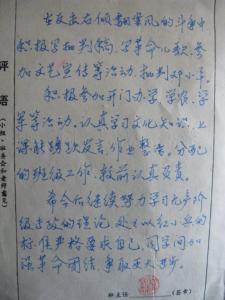 评语
(小组、班委会和老师意见)
在反击右倾翻案风的斗争中
积极写批判稿，写革命儿歌，参
加文艺宣传等活动，批判邓小平。
积极参加开门办学，学农、学
军等活动。认真学习文化知识，上
课能踴跃发言，作业整洁，分配
的班级工作，较前认真负责。
希今后继续努力学习无产阶
级专政的理论，处处以红小兵的
标准严格要求自己，同学间加
强革命团结，争取更大进步。
班主任
(签章)